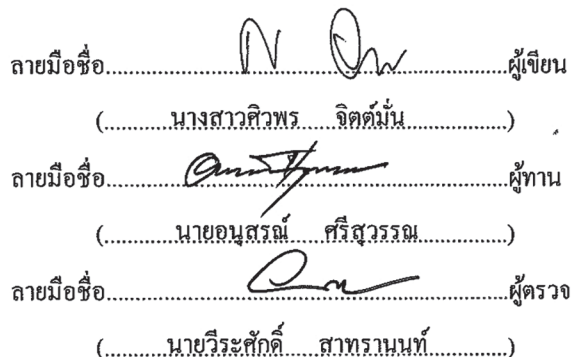 ลายมือชื่อ..........ผู้เขียน
(..........นางสาวศิวพร จิตต์มั่น..........)
ลายมือชื่อ..........ผู้ทาน
(..........นายอนุสรณ์ ศรีสุวรรณ..........)
ลายมือชื่อ..........ผู้ตรวจ
(..........นายวีระศักดิ์ สาทรานนท์..........)